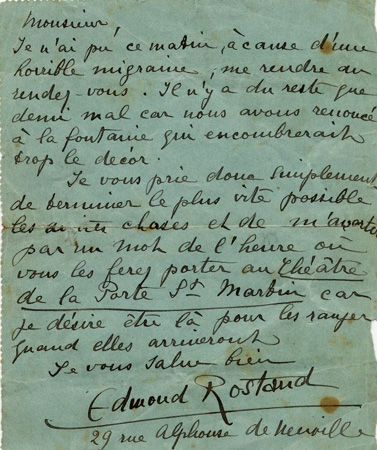 Monsieur,
Je n'ai pu, ce matin, à cause d'une
horrible migraine, me rendre au
rendez-vous. Il n'y a du reste que
demi mal car nous avons renoncé
à la fontaine qui encombrerait
trop le décor.
Je vous prie donc simplement
de terminer le plus vite possible
les choses et de m'avertir
par un mot de l'heure où
vous les ferez porter au Théâtre
de la Porte St Martin car
je désire être là pour les ranger
quand elles arriveront
Je vous salue bien
Edmond Rostand
29 rue Alphonse de Neuville